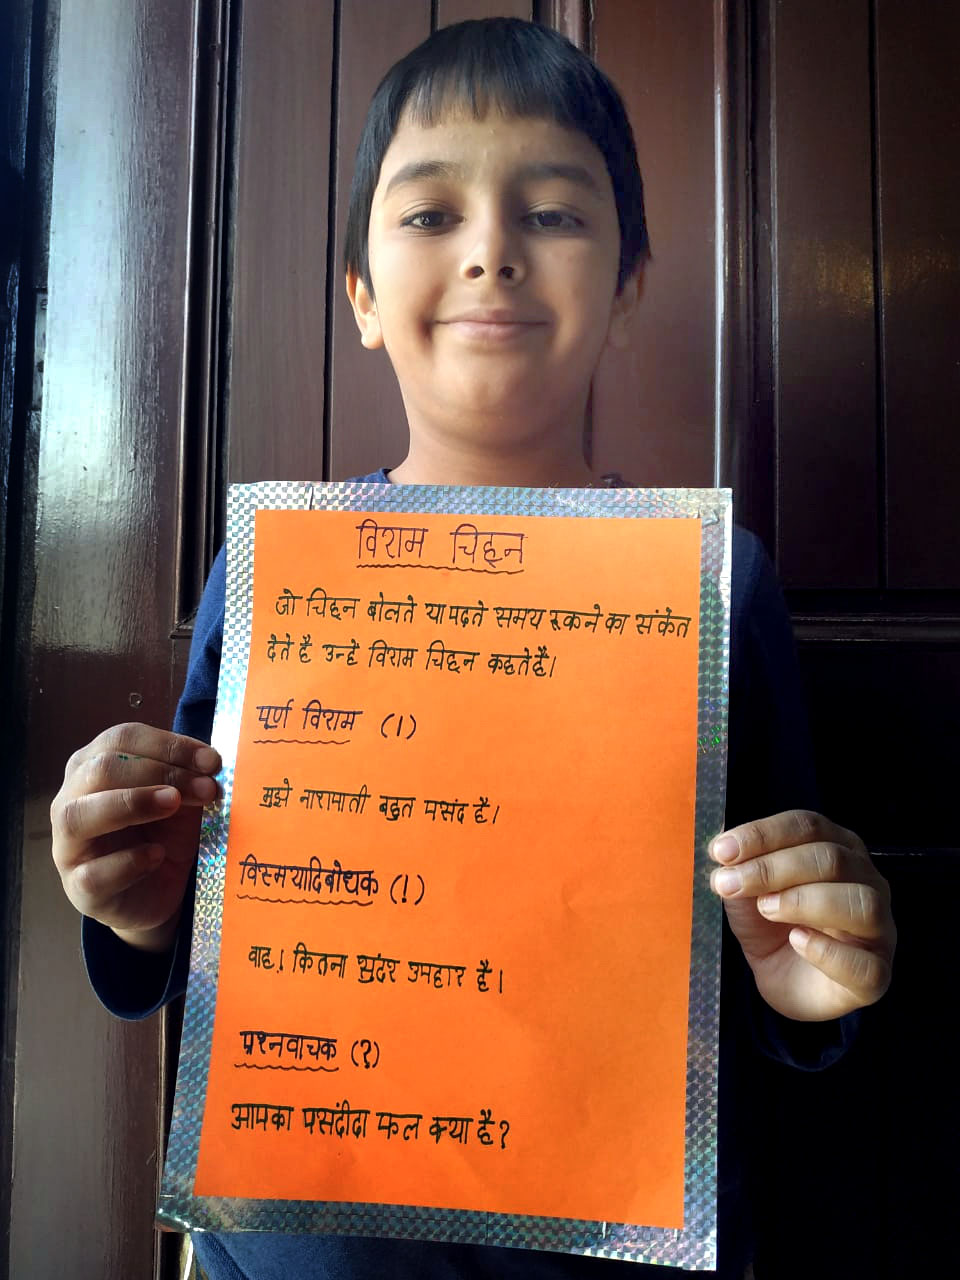 विराम चिहन
जो चिहन बोलते या पढ़ते समय रूकने का संकेत
देते है उन्हे विराम चिहन कहते है।
पूर्ण विराम (।)
मुझे नारापाती बहुत पसंद है।
विस्मयादिबोधक (!)
वाह! कितना सुंदर उपहार है।
प्रश्नवाचक (?)
आपका पसंदीदा फल क्या है?